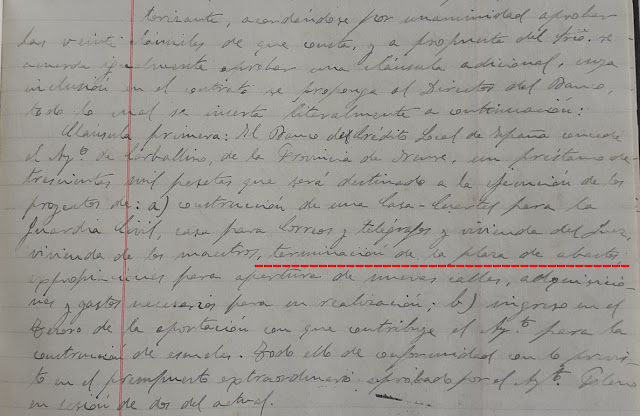 torizante, acordándose por unanimidad aprobar
las veinte cláusulas de que consta, y a propuesta del Srio. se
acuerda igualmente aprobar una cláusula adicional, cuya
inclusión en el contrato se proponga al Director del Banco,
todo lo cual se inserta literalmente a continuación:
Cláusula primera: El Banco de Crédito Local de España concede
el Ayto. de Carballino, de la Provincia de Orense, un préstamo de
trescientas mil pesetas que será destinado a la ejecución de los
proyectos de: a) construcción de una Casa-Cuartel para la
Guardia Civil, casa para Correos y telégrafos y vivienda del Juez,
vivienda de los maestros, terminación de la plaza de abastos
expropiaciones para apertura de nuevas calles, adquisicio-
nes y gastos necesarios para su realización; b) ingreso en el
Tesoro de la aportación con que contribuye el Ayto. para la
construcción de escuelas. Todo ello de conformidad con lo previs-
to en el presupuesto extraordinario aprobado por el Ayto. Pleno
en sesión de dos del actual.